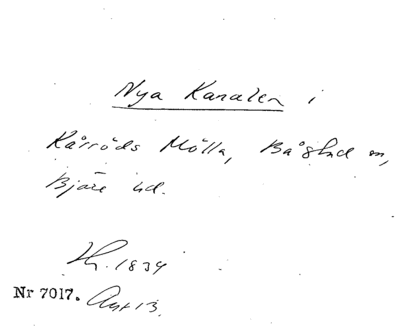 Nya Kanalen i
Kårröds Mölla, Båstad sn,
Bjäre hd.
Th. 1839
Nr 7017. Aut 13.